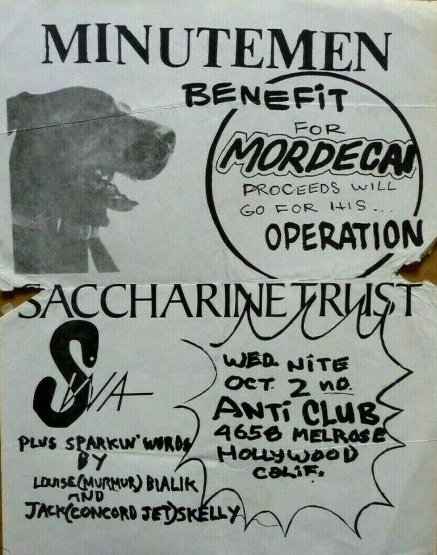 MINUTEMEN
BENEFIT
FOR
MORDECAI
PROCEEDS WILL
GO FOR HIS...
OPERATION
SACCHARINE TRUST
SWA
WED. NITE
OCT. 2 ND.
ANTI CLUB
4658 MELROSE
HOLLYWOOD
CALIF.
PLUS SPARKIN' WORDS
BY
LOUISE (MURMUR) BIALIK
AND
JACK (CONCORD JET) SKELLY